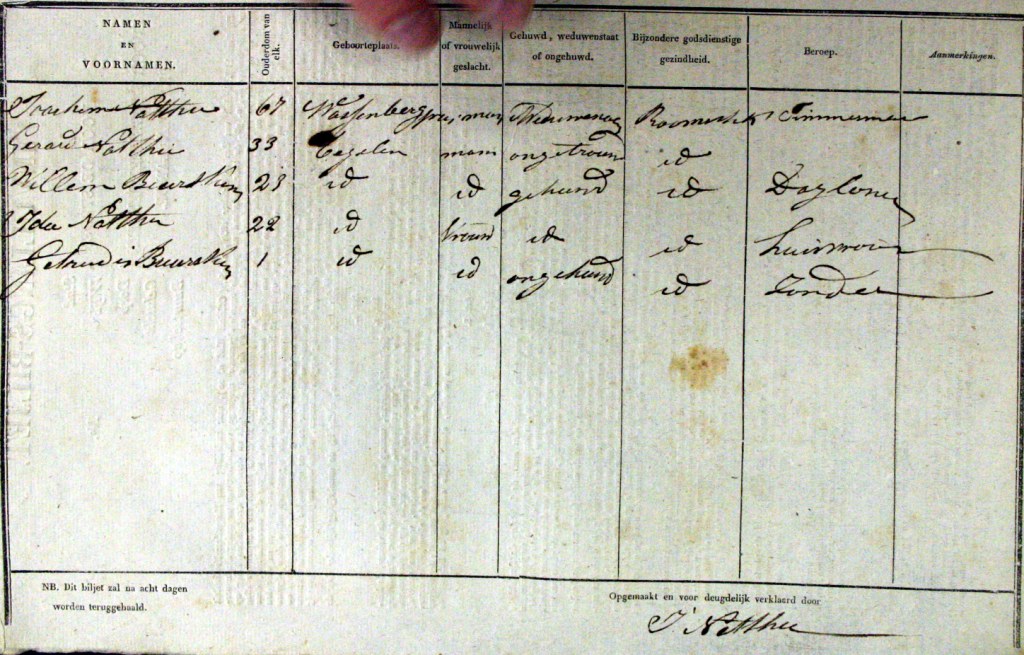 NAMEN
EN
VOORNAMEN.
Ouderdom van elk.
Geboorteplaats.
Mannelijk
of vrouwelijk
geslacht.
Gehuwd, weduwenstaat
of ongehuwd.
Bijzondere godsdienstige
gezindheid.
Beroep.
Aanmerkingen.
Joachim Natthee 67 Wassenberg man Roomsch Timmerman
Gerard Natthee 33 Tegelen man ongetroud id
Willem Beurskens 23 id id gehund id Dagloner
Ida Natthee 22 id vroun id id huisvrou
Getrudis Beursken 1 id id ongehund id Zonder
NB. Dit biljet zal na acht dagen
worden teruggehaald.
Opgemaakt en voor deugdelijk verklaard door
J Natthee